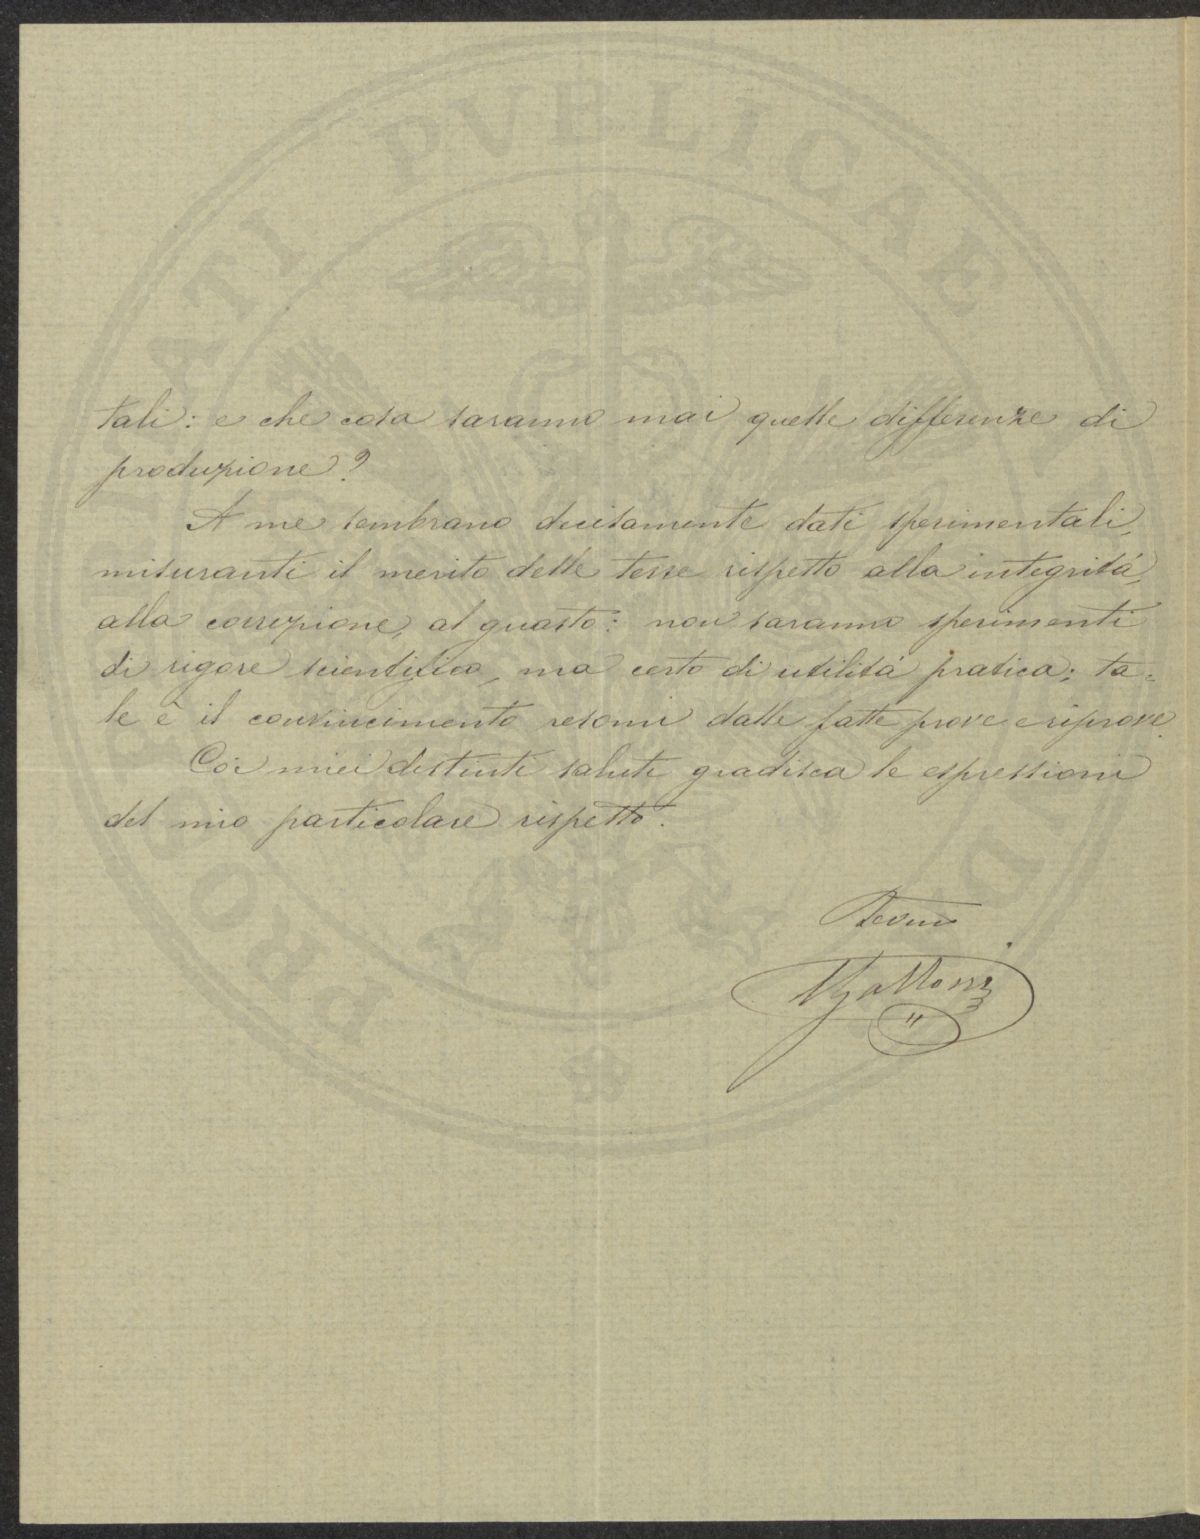 PROSPERITATI PVBLICAE
tali: e che cosa saranno mai quelle differenze di
produzione?
A me sembrano decisamente dati sperimentali,
misuranti il merito delle tesse rispetto alla integrità,
alla correzione, al guasto: non saranno sperimenti
di rigore scientifico, ma certo di utilità pratica; ta-
le è il convincimento resomi dalle fatte prove e riprove.
Coi miei distinti saluti gradisca le espressioni
del mio particolare rispetto.